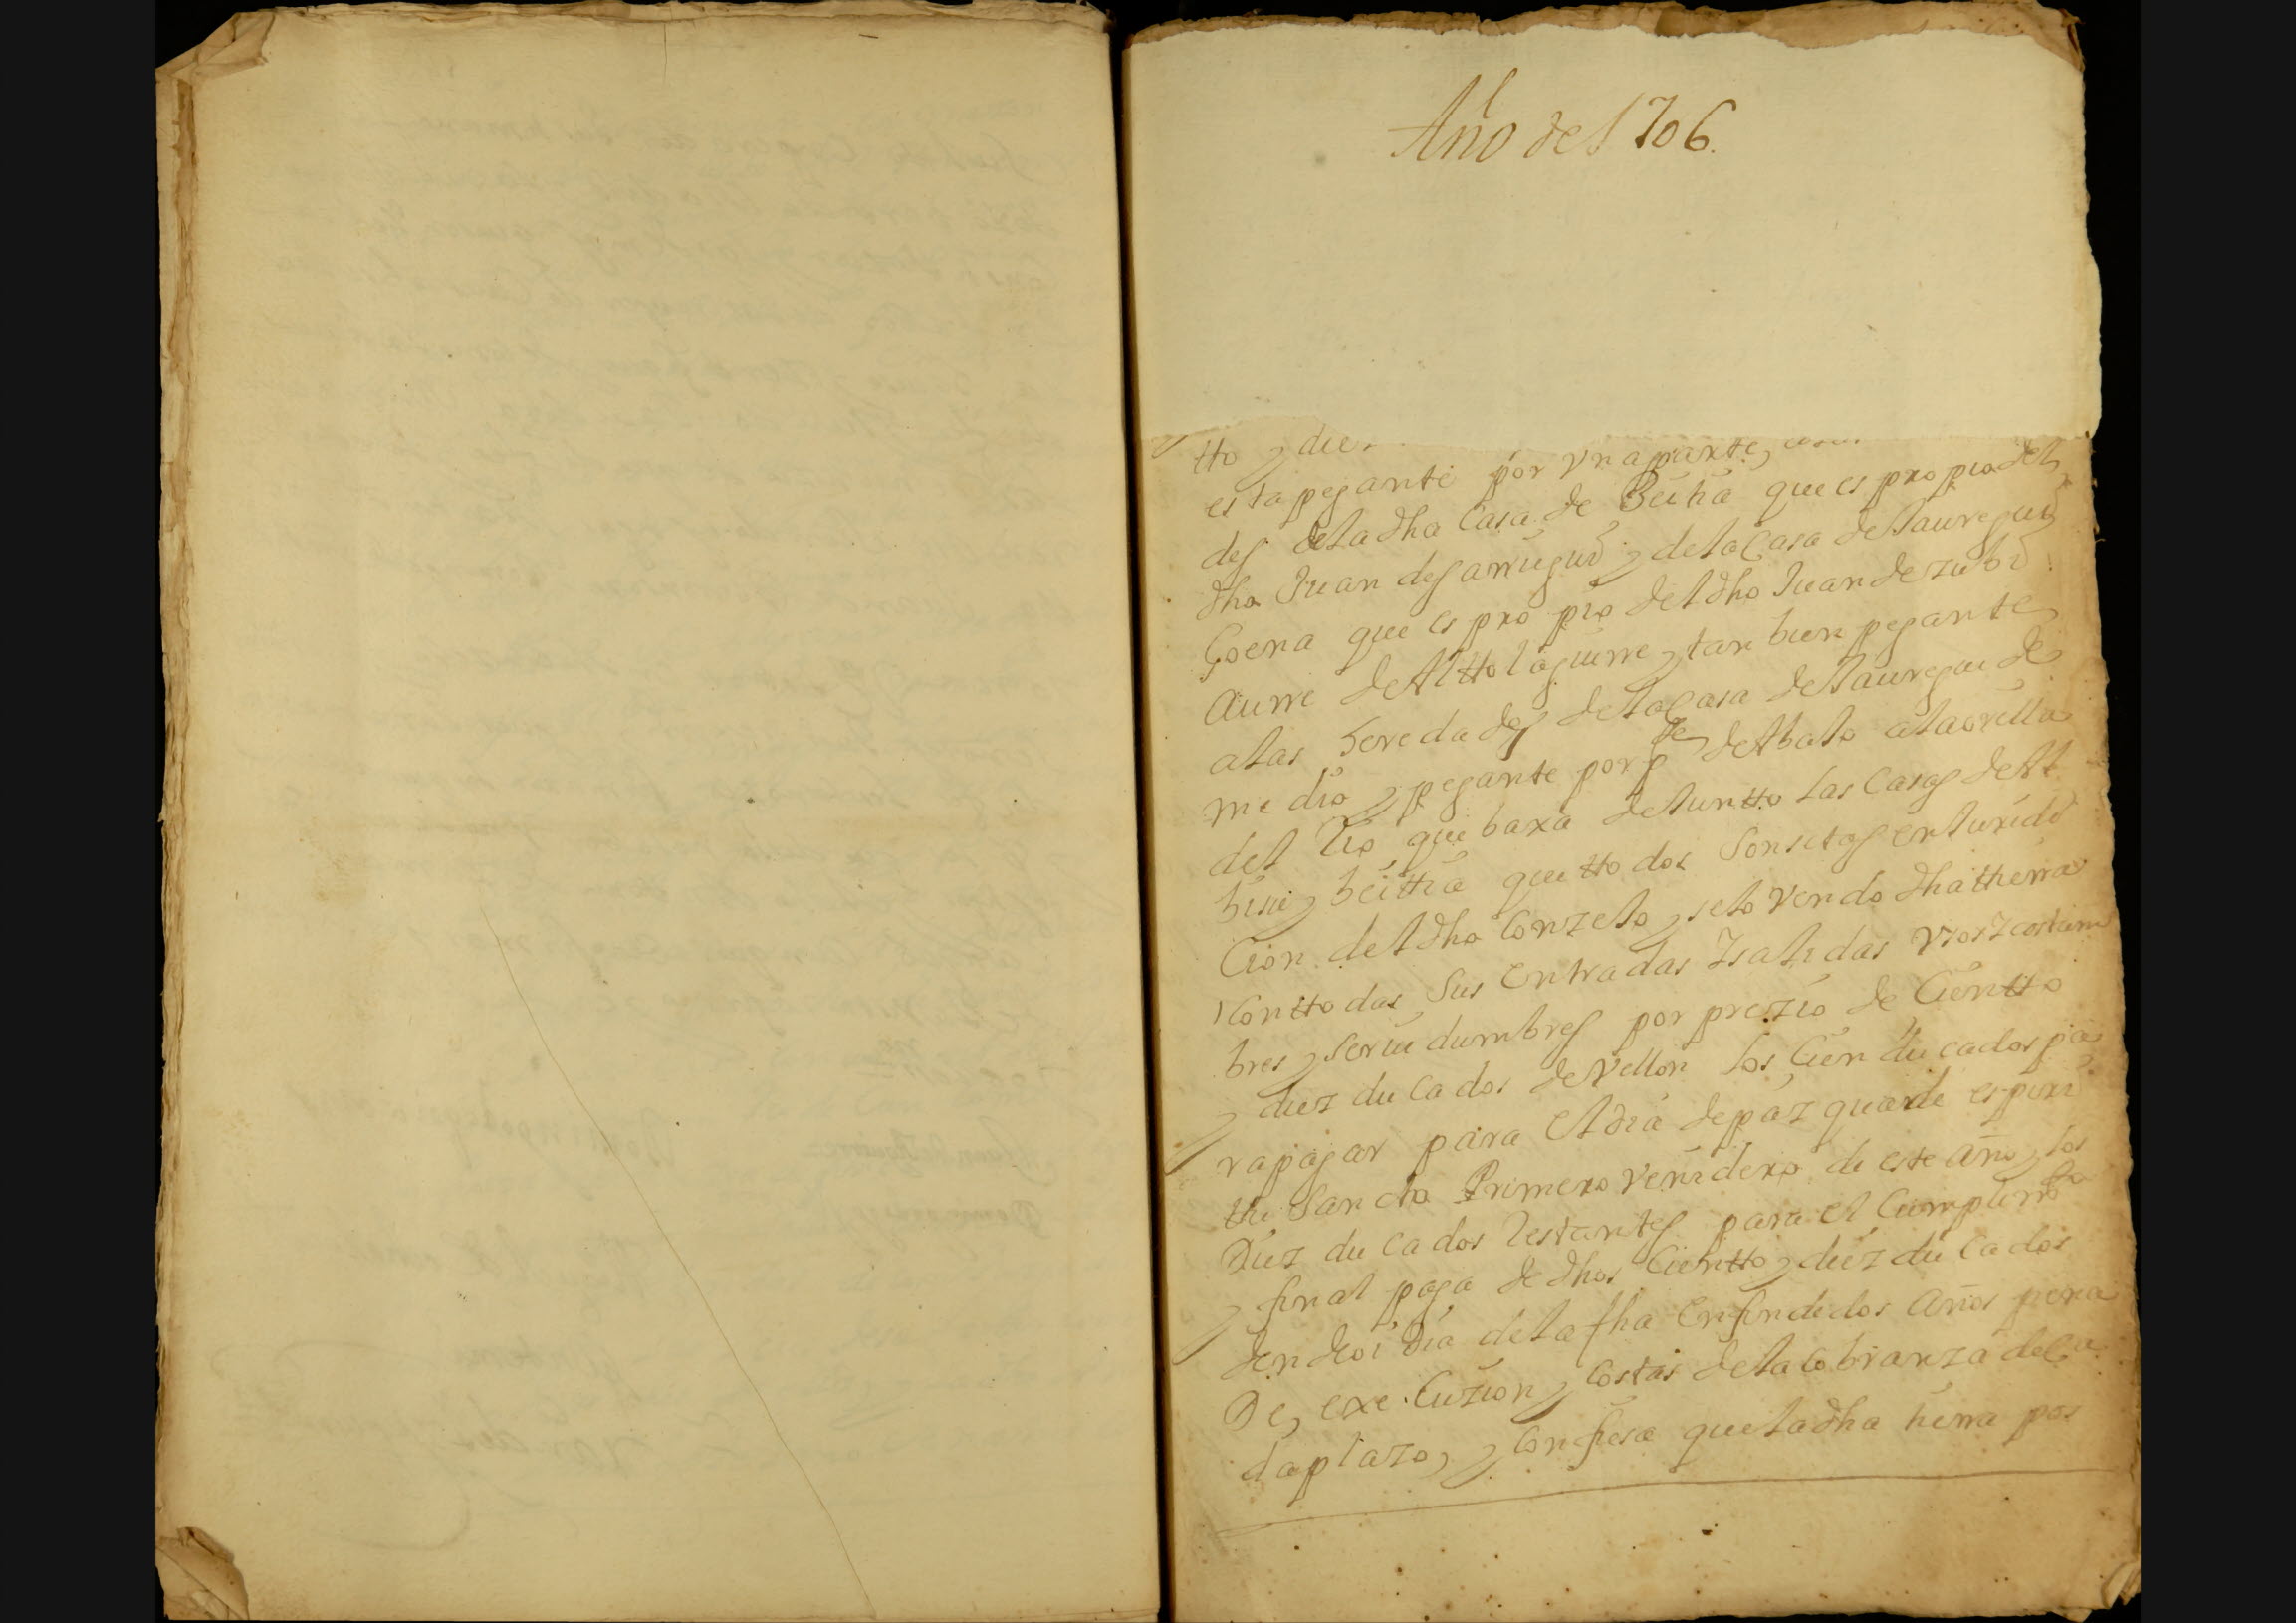 Año del 1706.
tto y die
esta pegante por Vna parte,
des de la dha Casa de que es propio del
dho Juan de y de la Casa de Jauregui
Goena que es pro pio del dho Juan de zubi
aurre de Alttolaguirre y tan bien pegante
a las heredades de la Casa de Jauregui de
me dio y pegante por pte de Abajo a la orilla
del Rio que baxa de Junto las Casas de
que ttodos Son sitos en Juridi
Cion del dho Conzejo y se lo Vendo dha tierra
Con ttodas Sus Entradas Y salidas Vsos Y costum
bres y seruidumbres por prezio de Cientto
y diez ducados de Vellon los Cien ducados pa
ra pagar para El dia de pazquarde espiri
tu Sancto Primero Venidero de este año y los
Diez ducados Restantes para el Cumplimto
y final paga de dhos Cientto y diez ducados
den de oi Dia de la fha En fin de dos Años pena
De, exe Cuzion y Costas de la Cobranza de Ca
da plazo, y Confiesa que la dha tierra por